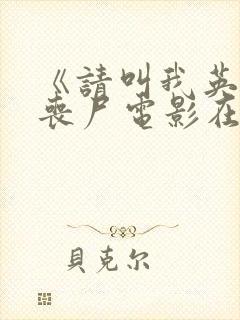 《請叫我英
喪尸電影在
貝克尔